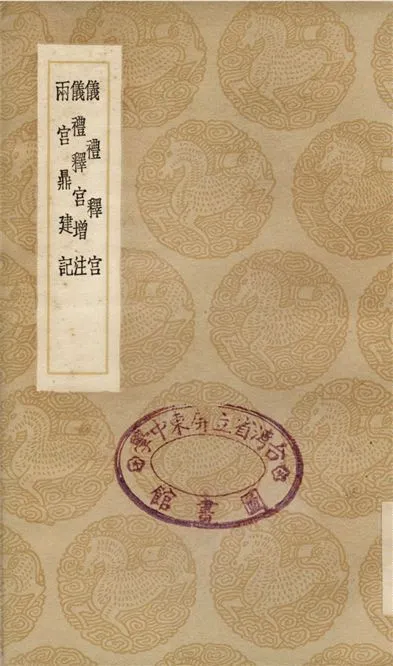 儀禮釋宮
儀禮釋宮增注
兩宮鼎建記
台灣省立屏東中學
圖書館